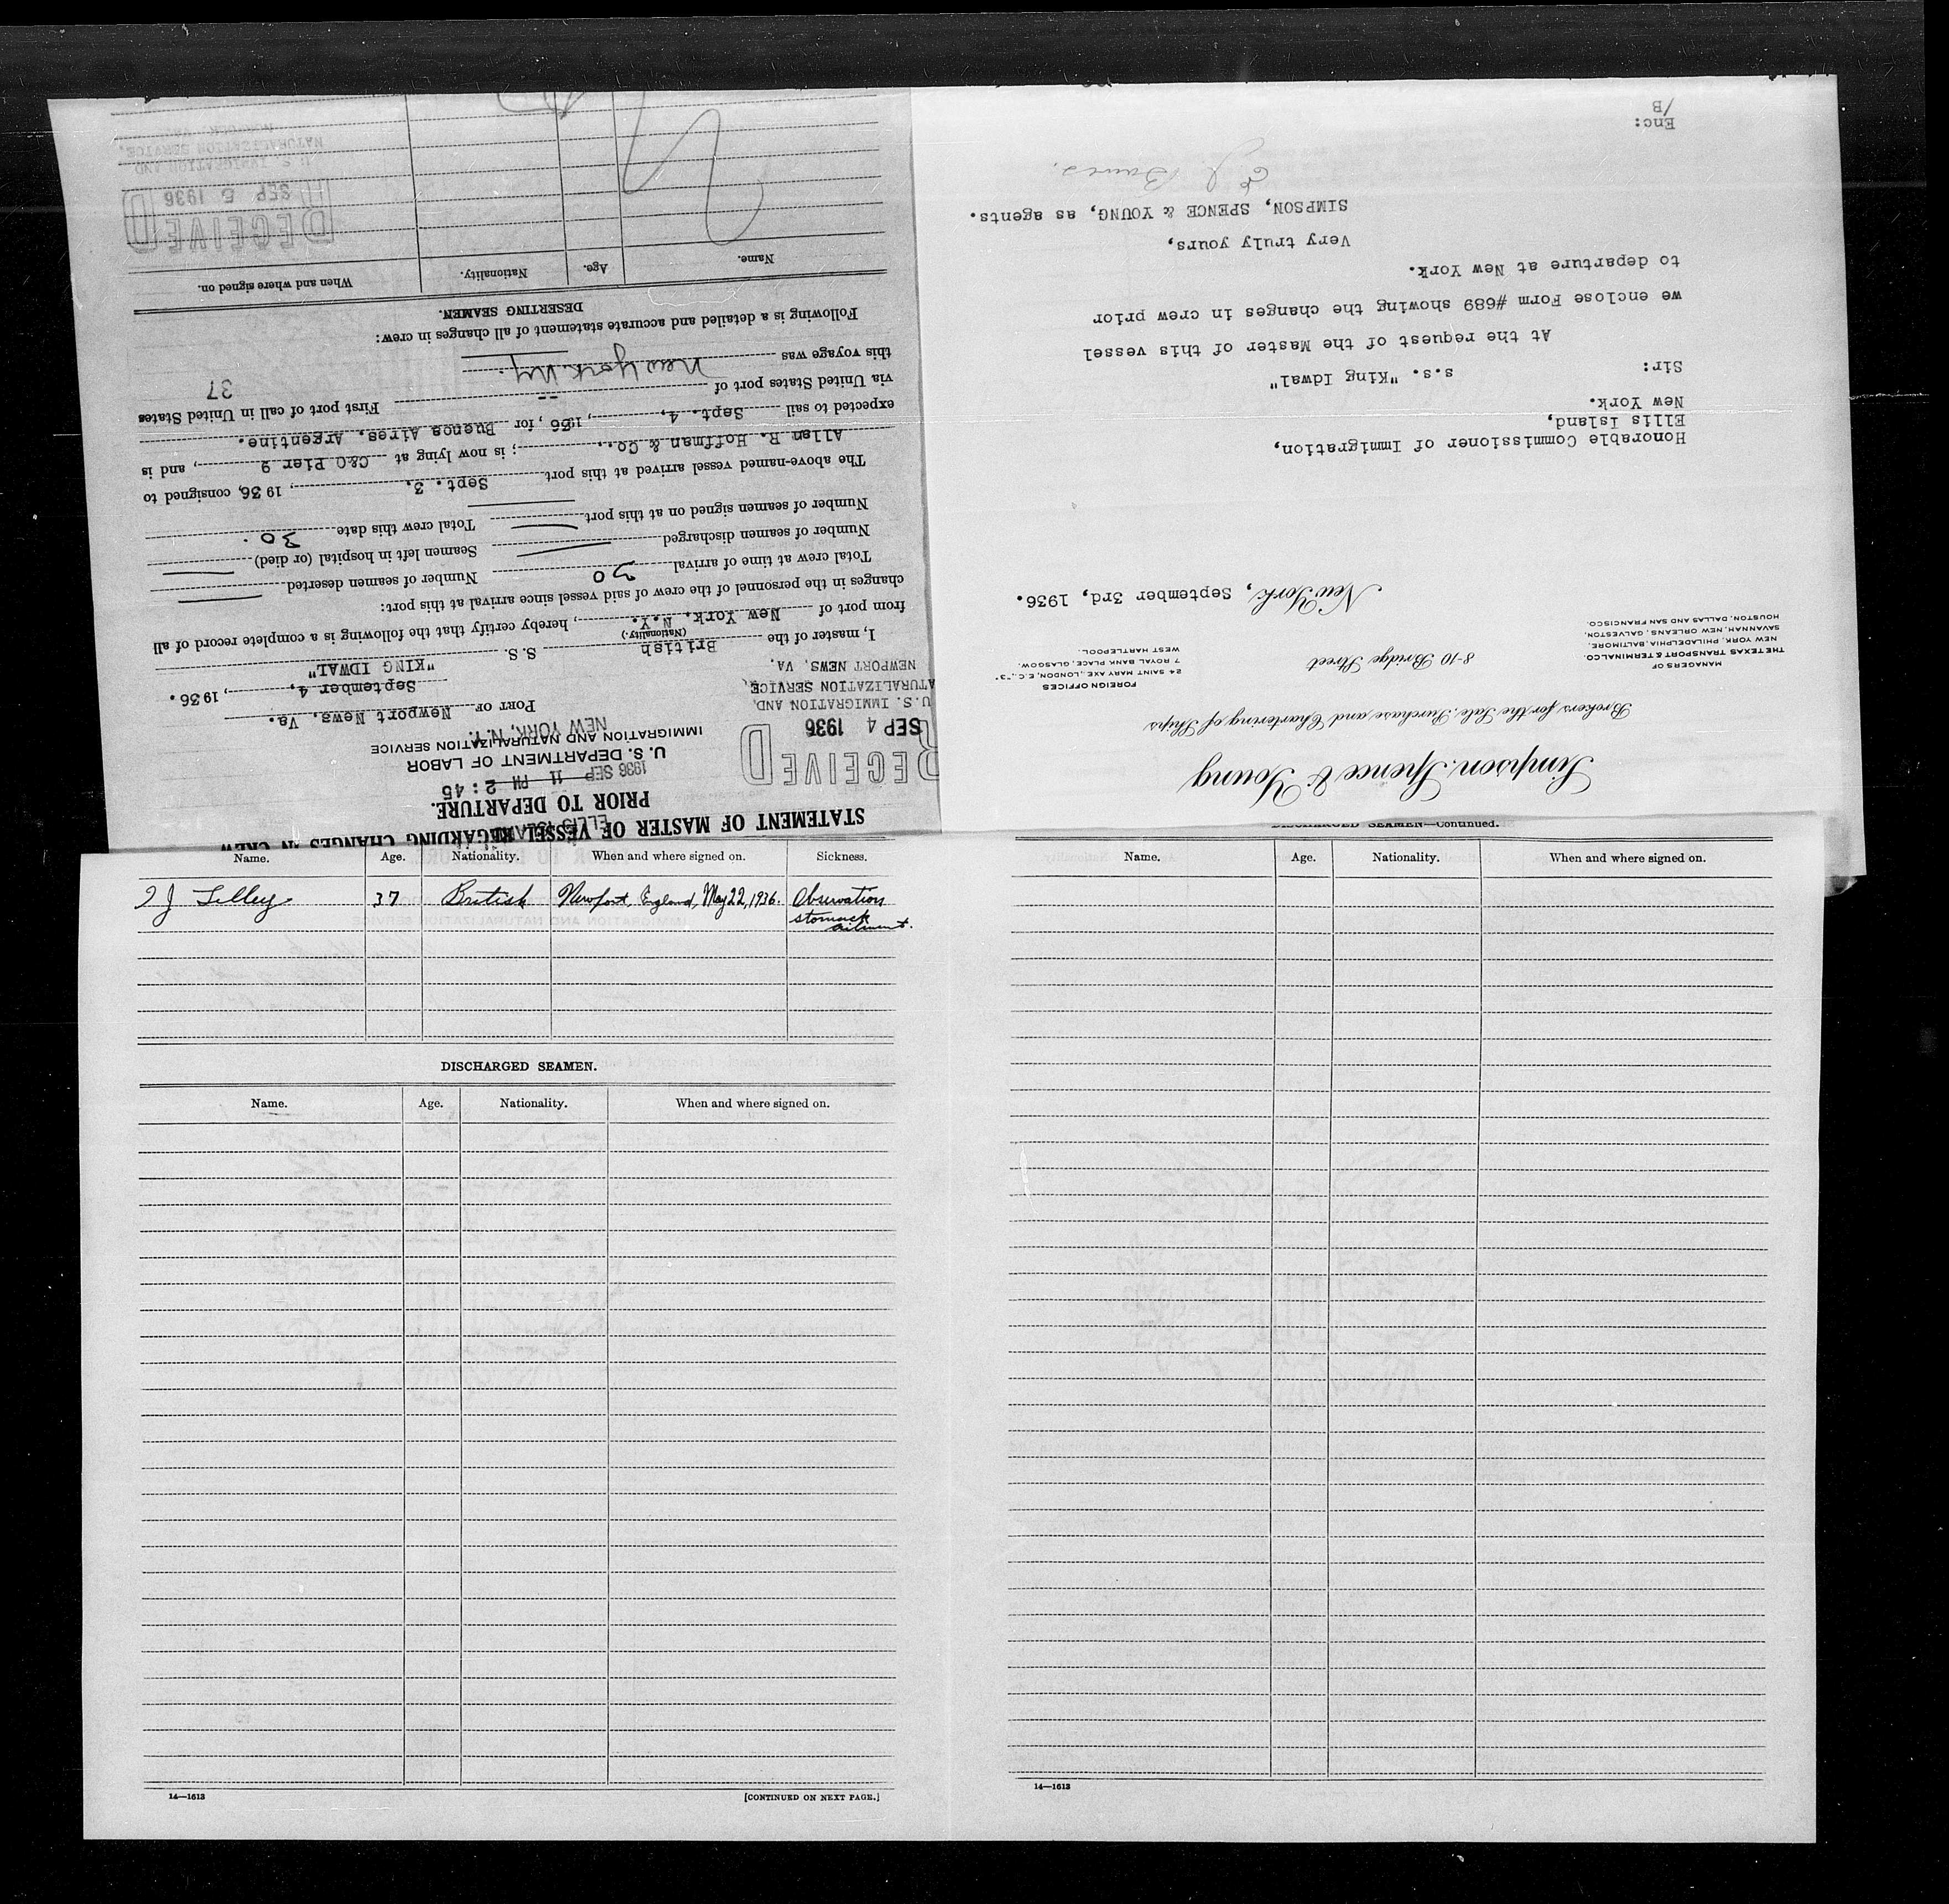 STATEMENT OF MASTER OF VESSEL REGARDING CHANGES IN CREW
PRIOR TO DEPARTURE.
ELLIS ISLAND
1936 SEP 11 PM 2:45
U. S. DEPARTMENT OF LABOR
IMMIGRATION AND NATURALIZATION SERVICE
NEW YORK, N.Y.
RECEIVED
SEP 4 1936
U. S. IMMIGRATION AND
NATURALIZATION SERVICE,
NEWPORT NEWS, VA.
PORT OF Newport News, Va.
September 4, 1936.
I, master of the British S. S. "KING IDWAL"
(Nationality.)
from port of New York. N.Y., hereby certify that the following is a complete record of all
changes in the personnel of the crew of said vessel since arrival at this port:
Total crew at time of arrival 30 Number of seamen deserted
Number of seamen discharged Seamen left in hospital (or died)
Number of seamen signed on at this port Total crew this date 30.
The above-named vessel arrived at this port Sept. 3. 1936, consigned to
Allan R. Hoffman & Co., ; is now lying at C&O Pier 9, and is
expected to sail Sept. 4, 1936, for Buenos Aires, Argentine.
via United States port of -- First port of call in United States
this voyage was New York. Ny. 37
Following is a detailed and accurate statement of all changes in crew:
DESERTING SEAMEN.
Name. Age. Nationality. When and where signed on.
RECEIVED
SEP 5 1936
U. S. IMMIGRATION AND
NATURALIZATION SERVICE,
Simpson, Spence & Young
Brokers for the Sale, Purchase and Chartering of Ships
MANAGERS OF
THE TEXAS TRANSPORT & TERMINAL CO.
NEW YORK, PHILADELPHIA, BALTIMORE,
SAVANNAH, NEW ORLEANS, GALVESTON,
HOUSTON, DALLAS AND SAN FRANCISCO.
8-10 Bridge Street
FOREIGN OFFICES
24 SAINT MARY AXE, LONDON, E.C., "3"
7 ROYAL BANK PLACE, GLASGOW.
WEST HARTLEPOOL.
New York, September 3rd, 1936.
Honorable Commissioner of Immigration,
Ellis Island,
New York.
Sir:
s.s. "King Idwal"
At the request of the Master of this vessel
we enclose Form #689 showing the changes in crew prior
to departure at New York.
Very truly yours,
SIMPSON, SPENCE & YOUNG, as agents.
Enc:
/B
Name. Age. Nationality. When and where signed on. Sickness.
J Lilley 37 British Newport, England, May 22, 1936. Observation
stomach
ailment.
DISCHARGED SEAMEN.
Name. Age. Nationality. When and where signed on.
14—1613
[CONTINUED ON NEXT PAGE.]
DISCHARGED SEAMEN—Continued.
Name. Age. Nationality. When and where signed on.
14—1613